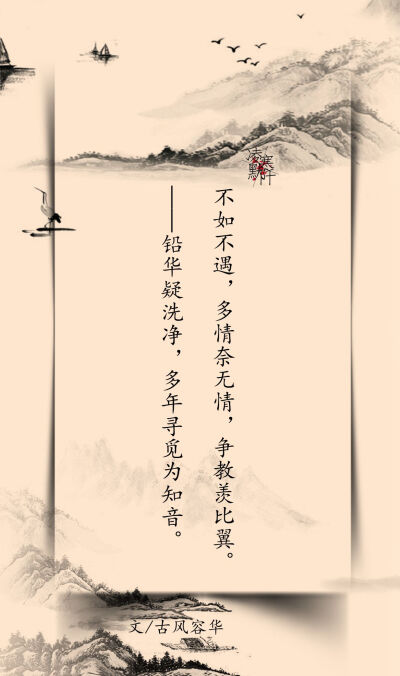 不如不遇，多情奈无情，争教羡比翼。
——铅华疑洗净，多年寻觅为知音。
文/古风容华